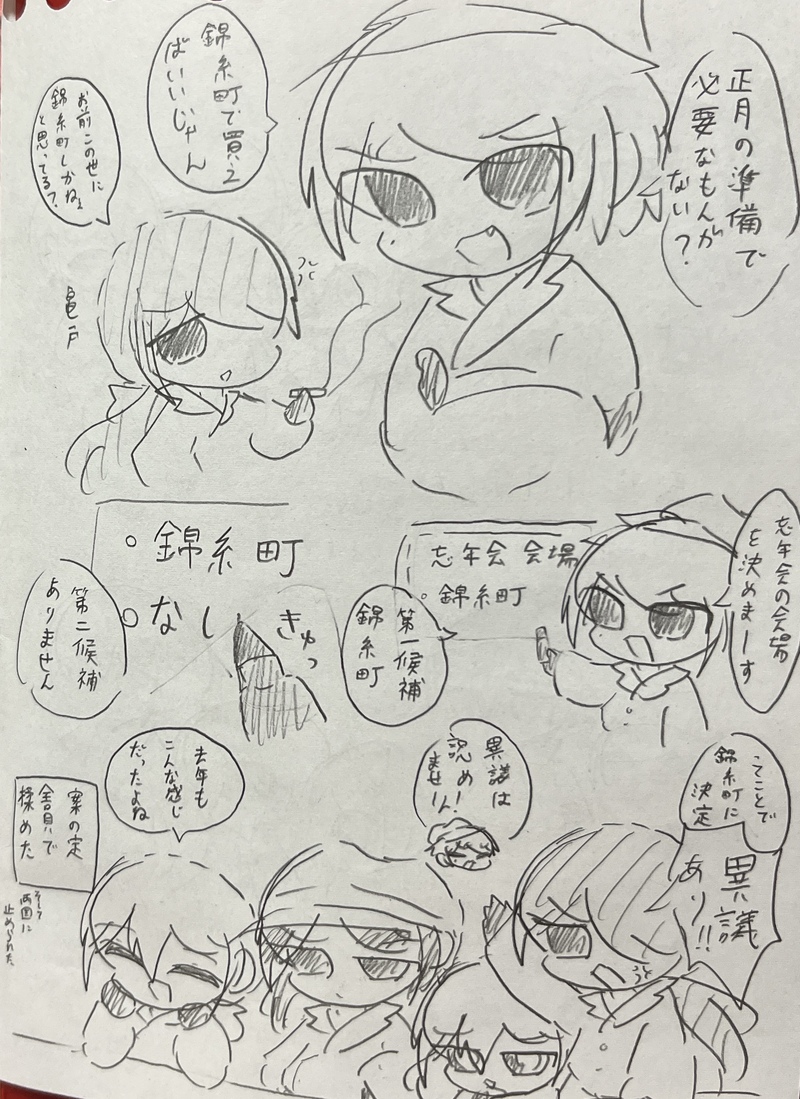 正月の準備で
必要なもんが
ない?
錦糸町で買え
ばいいじゃん
お前この世に
錦糸町しかねぇ
と思ってる?
亀戸
忘年会の会場
を決めまーす
忘年会 会場
錦糸町
第一候補
錦糸町
錦糸町
なし
きゅっ
第二候補
ありません
てことで
錦糸町に
決定
異議
あり!!
異議は
認め
ませーん!
去年も
こんな感じ
だったよね
案の定
全員で
揉めた
そして
両国に
止められた